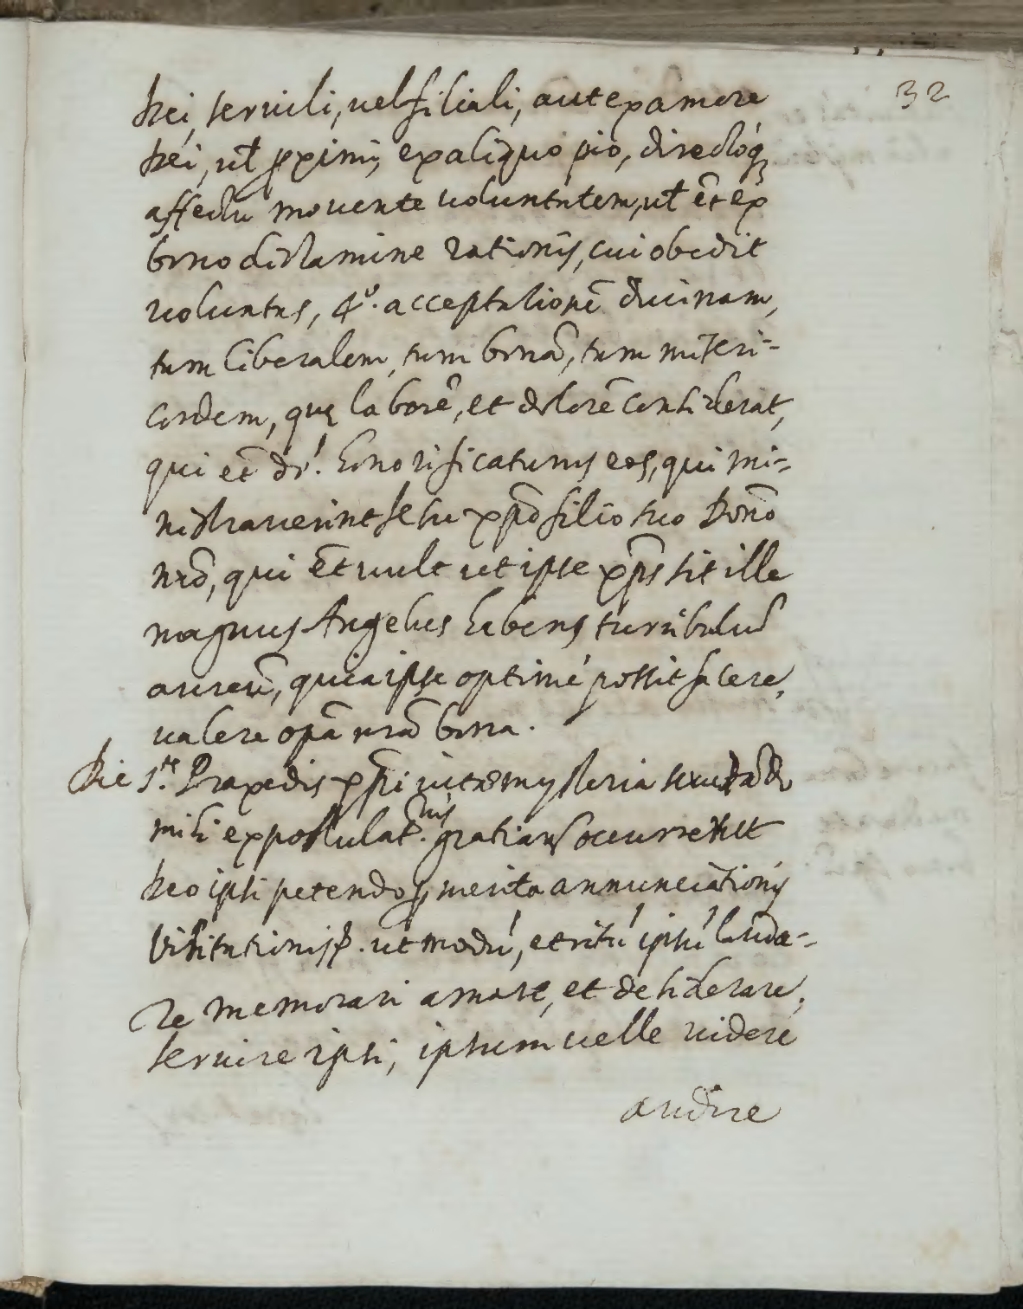 32
Dei, seruili, uel filiali, aut ex amore
Dei, ut̃ ꝓximi, ex aliquo pio, directoq́
affectu mouente uoluntatem, ut̃ et̃ ex
bono dictamine rationis, cui obedit
uoluntas, 4.º acceptationẽ diuinam,
tum liberalem, tum bonã, tum miseri=
cordem, quę laborẽ, et dolorẽ considerat,
qui et̃ dr̃. honorificaturus eos, qui mi=
nistrauerint Jesu xp̃o filio suo Dom̃o
nr̃o, qui et̃ uult ut ipse xp̃s sit ille
magnus Angelus habens turribulũ
aureũ, quia ipse optimé possit facere,
ualere opã nr̃ã bona.
Die S.te Praxedis xp̃i uitæ mysteria
mihi expostulat. gratias occurrebat
Deo ipsi petendo ꝑ merita annunciationis
Visitationis p̃. ut modũ, et ritũ ipsũ lauda=
re memorari amare, et desiderare,
seruire ipsi, ipsum uelle uidere
audire